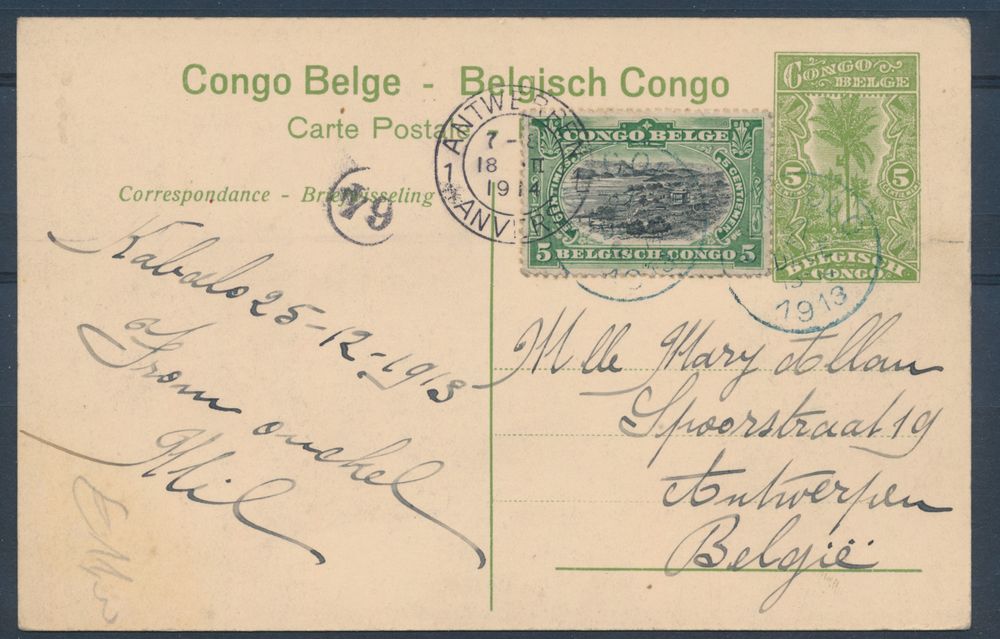 Congo Belge - Belgisch Congo
Carte Postale
Correspondance - Briefwisseling
CONGO BELGE
5 5
BELGISCH CONGO
CONGO BELGE
5 CENTIEMEN
5 5
BELGISCH-CONGO
ANTWERPEN
7-8
18 II
1914
ANVERS
1913
1913
Kabalo 25-12-1913
From onckel
Mil
Mlle Mary Allan
Spoorstraat 19
Antwerpen
België